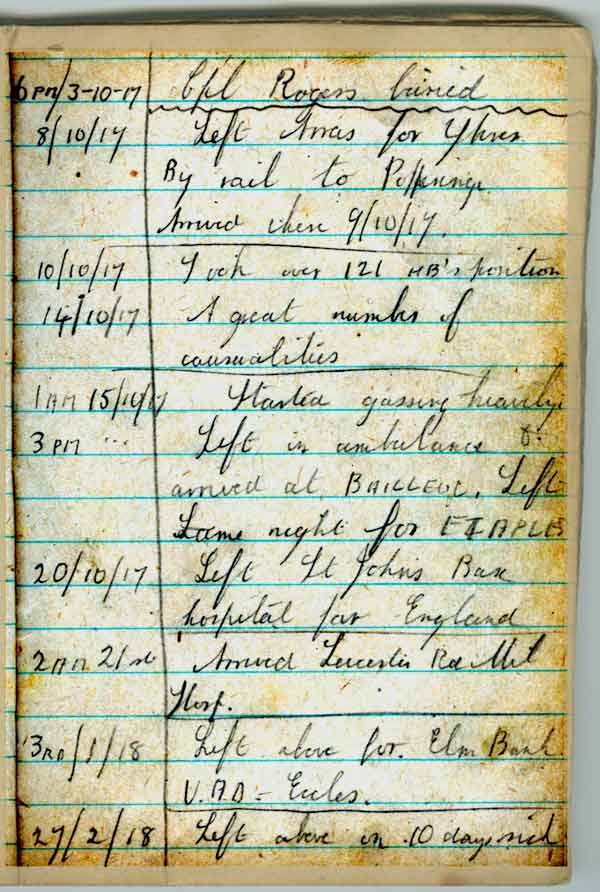 6 PM/3-10-17 Cpl Rogers buried
8/10/17 Left Arras for Ypres
By rail to Popperinge
Arrived there 9/10/17.
10/10/17 Took over 121 HB's position
14/10/17 A great number of
causualities
1 AM 15/10/17 Started gassing heavily
3 PM ... Left in ambulance &
arrived at BAILLEUL. Left
same night for ETAPLES
20/10/17 Left St Johns Base
hospital for England
2 AM 21st Arrived Leicester Rd Mil
Hosp.
3RD/1/18 Left above for. Elm Bank
V.A.D - Eccles.
27/2/18 Left above on 10 days sick